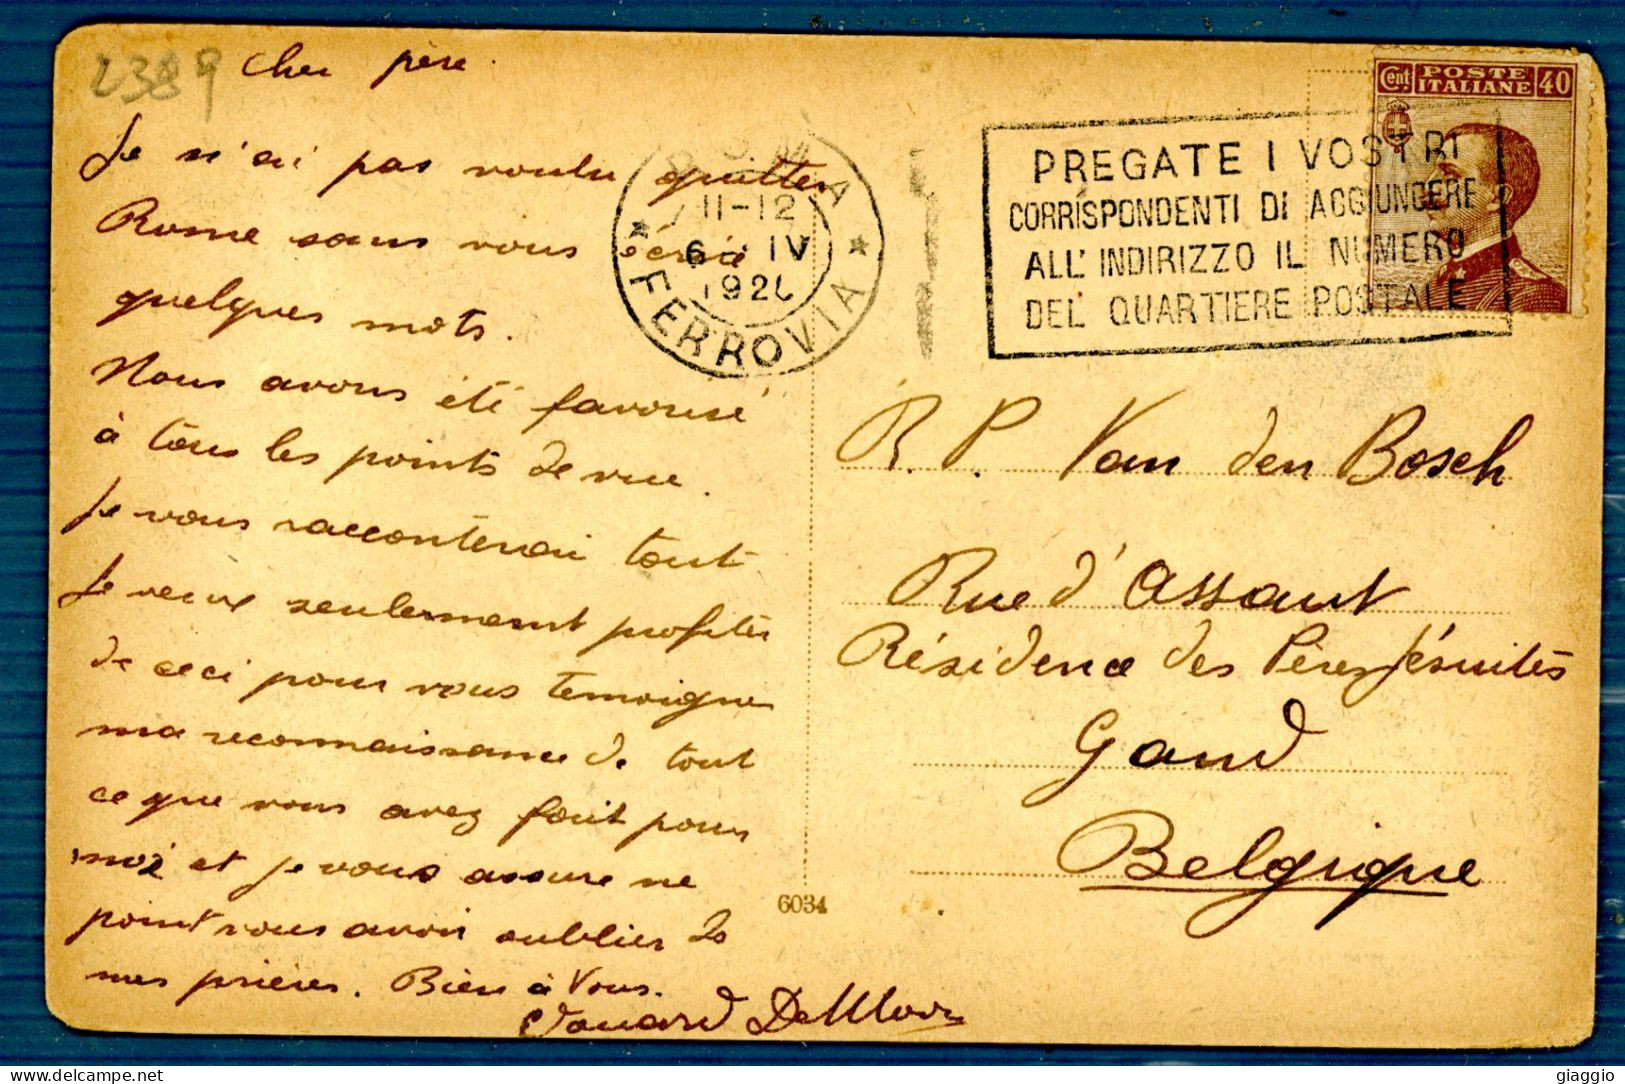 2389
Cher père.
Je n'ai pas voulu quitter
Rome sans vous écrire
quelques mots.
Nous avons été favorisé
à tous les points de vue.
Je vous racconterai tout
Je veux seulement profiter
de ceci pour vous temoigner
ma reconnaissance de tout
ce que vous avez fait pour
moi et je vous assure ne
point vous avoir oublier ds
mes prières. Bien à Vous.
Edouard
ROMA
11-12
6 IV
FERROVIA
Cent POSTE ITALIANE 40
PREGATE I VOSTRI
CORRISPONDENTI DI AGGIUNGERE
ALL'INDIRIZZO IL NUMERO
DEL QUARTIERE POSTALE
R. P. Van den Bosch
Rue d'Assaut
Résidence des Pères Jésuites
Gand
Belgique
6034
delcampe.net
giaggio